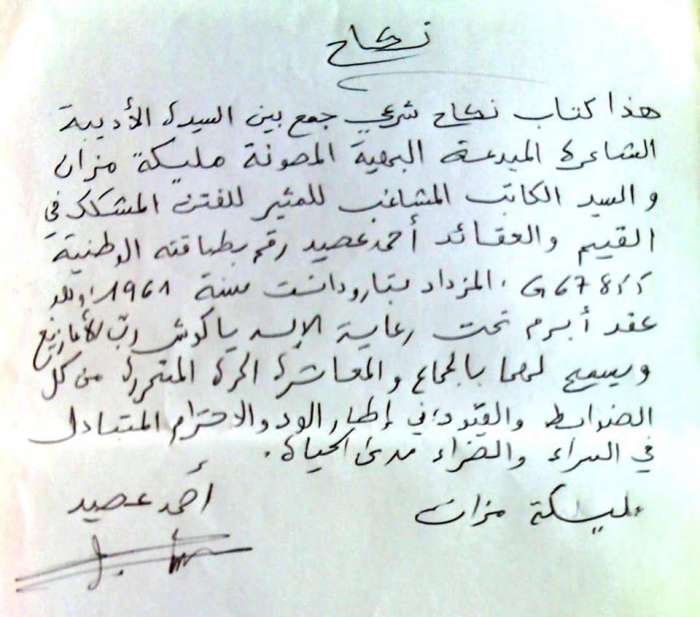 نكاح
هذا كتاب نكاح شرعي جمع بين السيدة الأديبة
الشاعرة المبدعة البهية المصونة مليكة مزان
و السيد الكاتب المشاغب المثير للفتن المشكك في
القيم والعقائد أحمد عصيد رقم بطاقته الوطنية
المزداد بتارودانت سنة 1961،
عقد أبرم تحت رعاية الإله ياكوش ربّ الأمازيغ
ويسمح لهما بالجماع والمعاشرة الحرة المتحررة من كل
الضوابط والقيود، في إطار الود والاحترام المتبادل
في السراء والضراء مدى الحياة.
مليكة مزان
أحمد عصيد